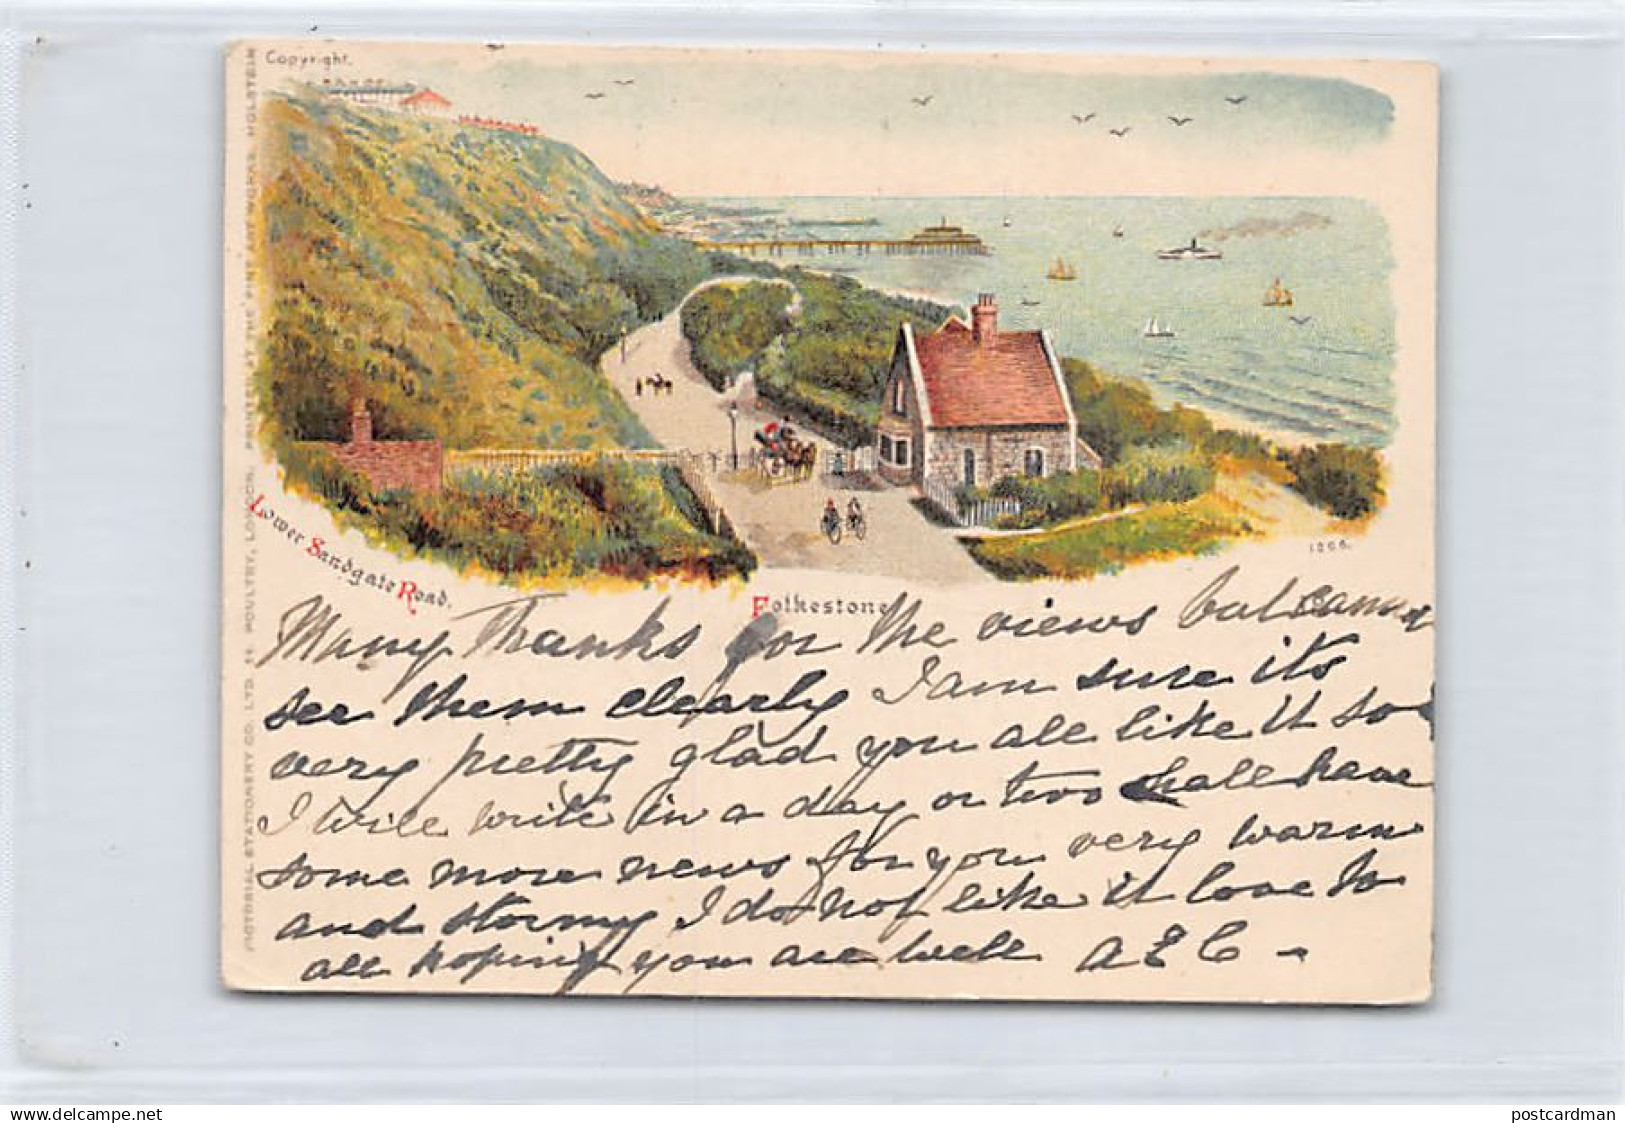 Copyright.
PICTORIAL STATIONERY CO. LTD. POULTRY, LONDON. PRINTED AT THE FINE ART WORKS, HOLSTEIN
Lower Sandgate Road.
Folkestone
1266.
Many Thanks for the views but cannot
see them clearly I am sure its
very pretty glad you all like it so
I will write in a day or two shall have
some more news for you very warm
and stormy I do not like it love to
all hoping you are well A E C -
www.delcampe.net
postcardman